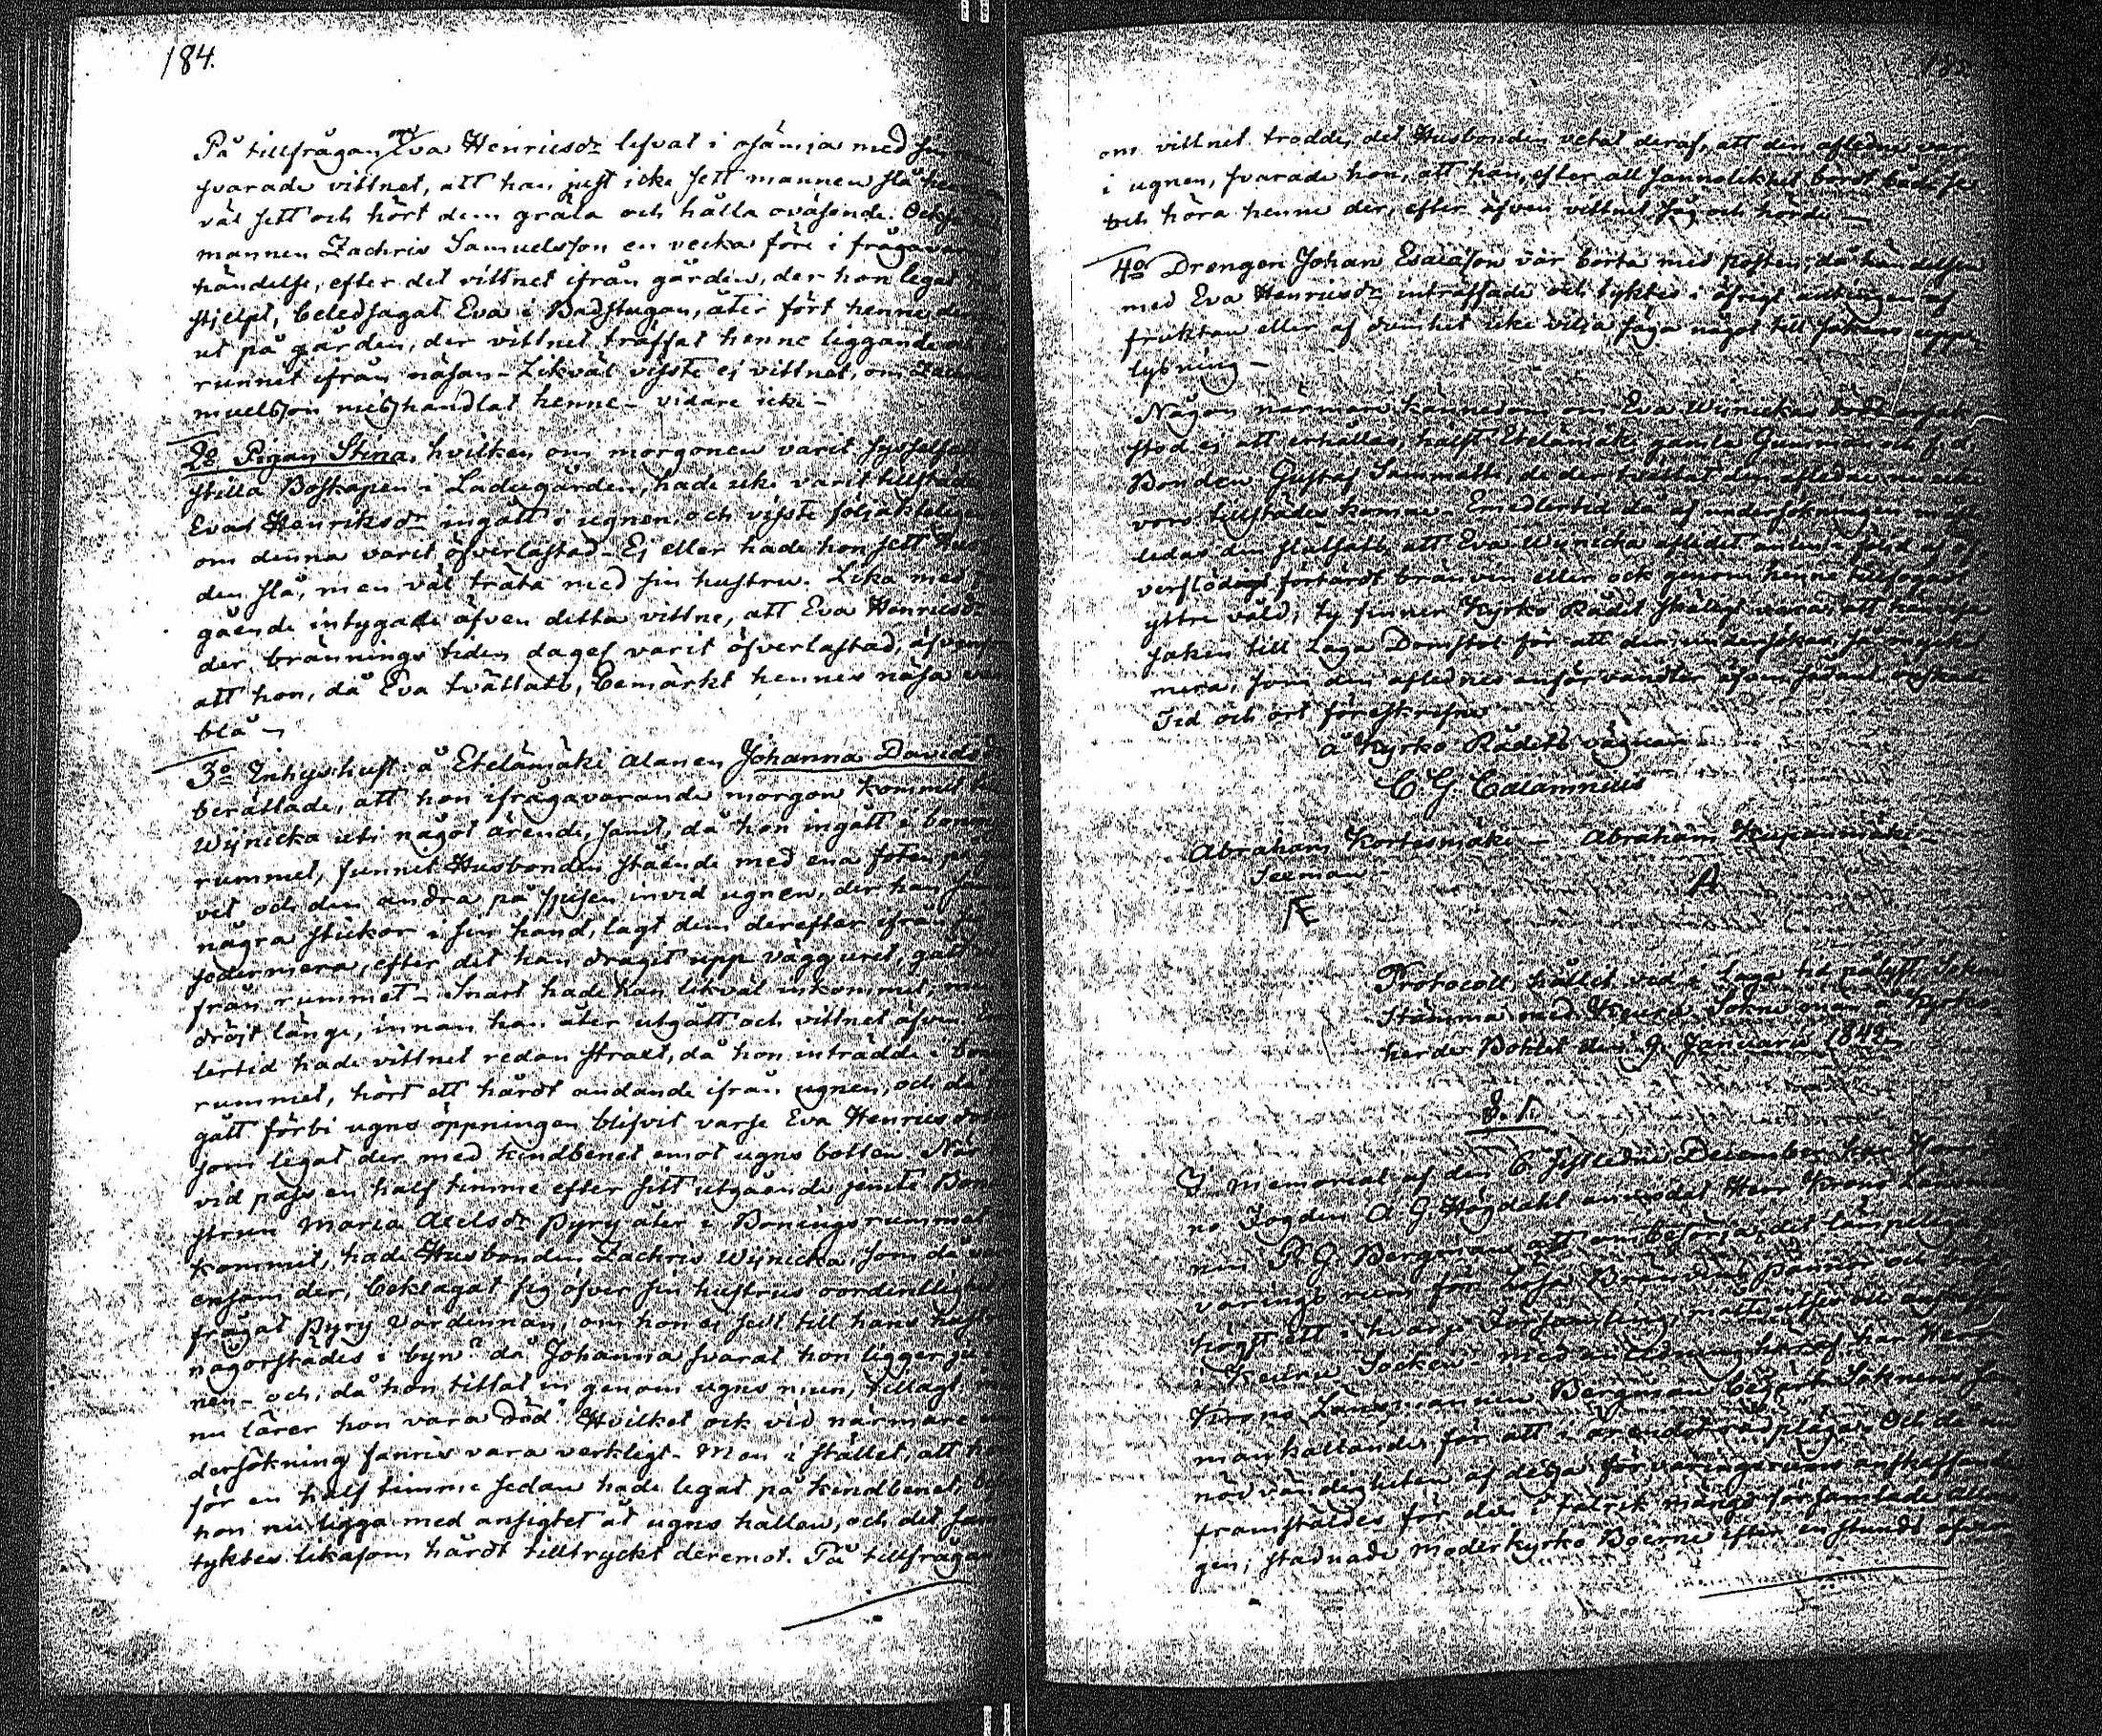 184.
På tillfrågan om Eva Henricsdr lefvat i osämja med sin
svarade vittnet, att han just icke sett mannen slå henne
väl sett och hört dem gräla och hålla oväsende. Ock
mannen Zachris Samuelsson en vecka före i frågavar
händelse, efter det vittnet ifrån gården, der hon legat
stjelpt, beledsagat Eva i Badstugan, åter fört henne der
ut på gården, der vittnet träffat henne liggande
runnit ifrån näsan - Likväl visste ej vittnet, om Zachris
muelsson misshandlat henne - vidare icke -
2o Pigan Stina, hvilken om morgonen varit sysselsatt
stilla Boskapen i Ladugården, hade icke varit tillstädes
Eva Henriksdr ingått i ugnen, och visste följakteligen
om denna varit öfverlastad - Ej eller hade hon sett Hus
den slå, men väl träta med sin hustru. Lika med
gående intygade äfven detta vittne, att Eva Henricsdr
der bränningstiden dagel varit öfverlastad, äfvensom
att hon, då Eva tvättats, bemärkt hennes näsa var
blå -
3o Inhyshust: å Etelämäki Alanen Johanna Davidsdr
berättade, att hon ifrågavarande morgon kommit till
Wijnicka uti något ärende, samt, då hon ingått i bonings
rummet, funnit Husbonden stående med ena foten på
vet och den andra på spisen invid ugnen, der han
några stickor i sin hand, lagt dem derefter ifrån
sedermera, efter det han dragit upp vägguret, gått
från rummet - Snart hade han likväl inkommit, men
dröjt länge, innan han åter utgått och vittnet äfven
lertid hade vittnet redan straxt, då hon inträdde i bonings
rummet, hört ett hårdt andande ifrån ugnen, och då
gått förbi ugns öppningen blifvit varse Eva Henricsdr
som legat der med kindbenet emot ugns botten. När
vid pass en half timme efter sitt utgående jemte Bond
strun Maria Axelsdr Pyry åter i Boningsrummet
kommit, hade Husbonden Zachris Wijnicka, som då var
ensam der, beklagat sig öfver sin hustrus oordentlighet
frågat Pyry Värdinnan, om hon ej sett till hans hustru
någorstädes i byn? då Johanna svarat hon ligger ju i
nen - och, då hon tittat in genom ugns mun, tillagt
nu lärer hon vara död. Hvilket ock vid närmare un
dersökning fanns vara verkligt - Men i stället, att hon
för en half timme sedan hade legat på kindbenet,
hon nu ligga med ansigtet åt ugns hällen, och det
tyktes likasom hårdt tilltryckt deremot. På tillfrågan
om vittnet trodde, det Husbonden vetat deraf, att den aflidne var
i ugnen, svarade hon, att han, efter all sannolikhet bordt både se
och höra henne der, efter äfven vittnet såg och hörde -
4o Drengen Johan Esaiasson var borta med posten, då händelsen
med Eva Henricsdr inträffade och tyktes i öfrigt antingen af
fruktan eller af dumhet icke vilja säga något till sakens upp
lysning -
Någon närmare kännedom om Eva Wijnickas
stod ej att erhållas, hälst Etelämäki gamla Gumman och f. d.
Bonden Gustaf Sammatti, de der tvättat den aflidne nu icke
voro tillstädes komne - Emedlertid då af undersökningen måste
ledas den slutsats, att Eva Wijnicka aflidit antingen i följd af öf
verflödigt förtärdt brännvin eller ock genom henne tillfogadt
yttre våld; ty finner Kyrko Rådet skäligt vara, att hänvisa
saken till Laga Domstol för att der undersökas, så mycket
mera, som den aflidnes anförvandter äfven sådant önskade
Tid och ort föreskrefne
å Kyrko Rådets vägnar
C G Calamnius
Abraham Kortesmäki - Abraham
Seeman
Æ A
Protocoll, hållit vid i Laga tid pålyst Sokne
Stämma med Keuru Sokne män å Kyrko
herde Bohlet den 9. Januarii 1842
§. 1.
I memorial af den 6 sistledne December har Herr
no Fogden A G Högdahl anmodat Herr Krono Länsman
nen R G Bergman att ombesörja, det lämpeliga för
varings rum för lösa Brännvins pannor och
högst ett i hvarje Församling, måtte
i Keuru Socken - med anledning häraf har Herr
Krono Länsmannen Bergman begärt Soknens
manhållande för att i ärendet rådpläga. Och då nu
nödvändigheten af dessa förvaringsrums anskaffande
framställdes för de i talrik mängd församlade
gen; stadnade moderkyrko Boerne efter en stunds öfver